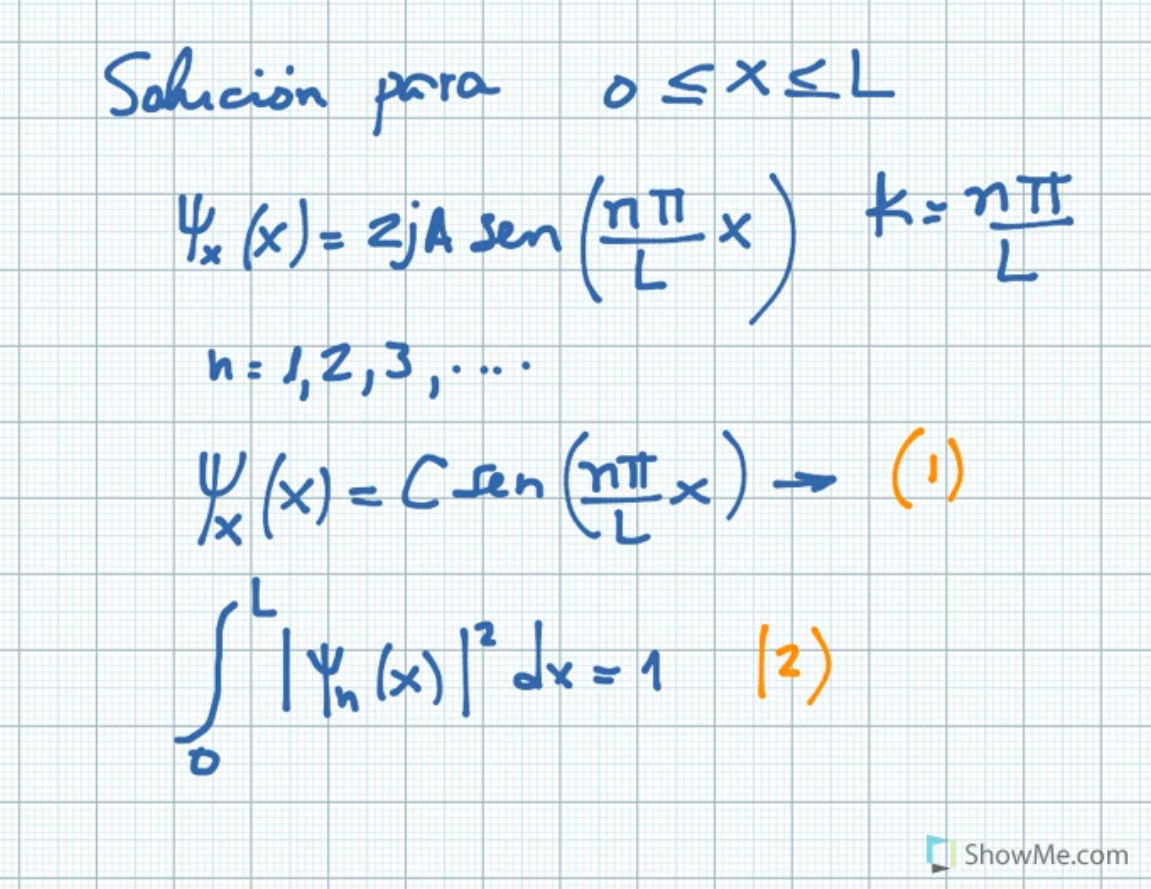 Solución para 0 ≤ x ≤ L
Ψₓ(x) = 2jA sen(nπ/L x) k = nπ/L
n = 1, 2, 3, ....
Ψₓ(x) = C sen(nπ/L x) → (1)
∫₀ᴸ |Ψₙ(x)|² dx = 1 (2)
ShowMe.com